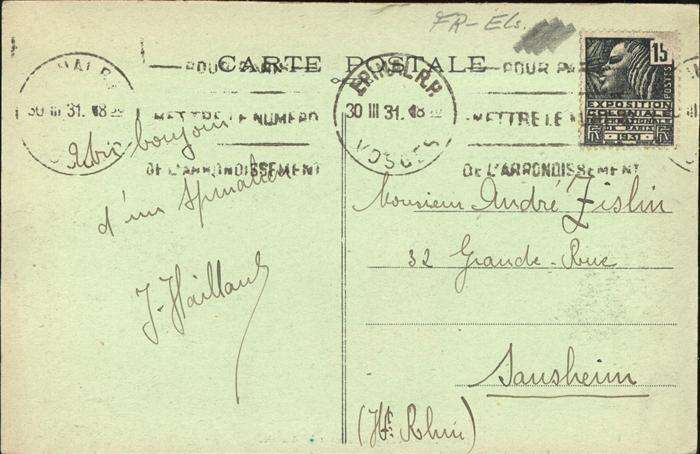 FR-Els.
CARTE POSTALE
15
POSTES
EXPOSITION
COLONIALE
INTERNATIONALE
DE PARIS
1931
POUR PARIS
METTRE LE NUMERO
DE L'ARRONDISSEMENT
EPINAL R.P.
30 III 31. 18
VOSGES
POUR PA
METTRE LE
DE L'ARRONDISSEMENT
30 III 31. 18
bonjour
d'un Spinalien
J. Haillant
Monsieur André Zislin
32 Grande-Rue
Sausheim
(Ht Rhin)